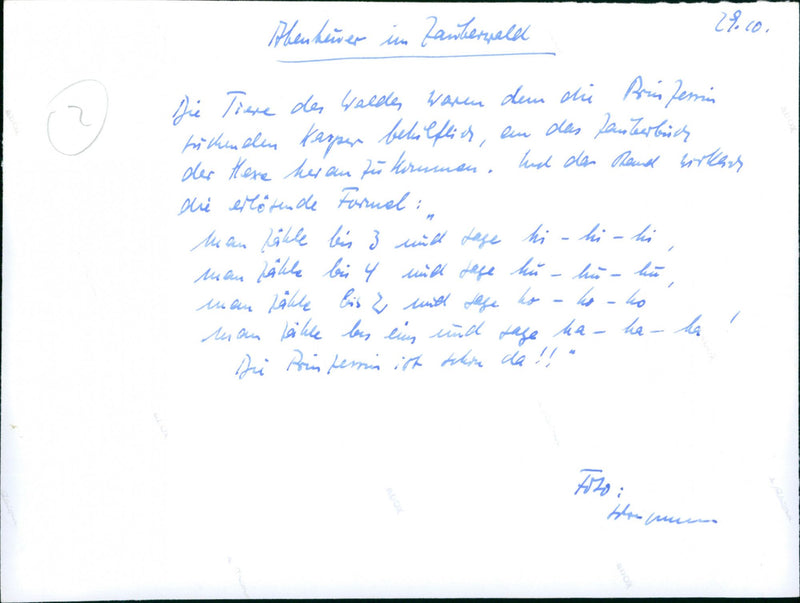 29.10.
Abenteuer im Zauberwald
2
Die Tiere des Waldes waren dem die Prinzessin
suchenden Kasper behilflich, an das Zauberbuch
der Hexe heranzukommen. Und da stand wirklich
die erlösende Formel:
"Man zähle bis 3 und sage hi - hi - hi,
man zähle bis 4 und sage hu - hu - hu,
man zähle bis 2 und sage ho - ho - ho
man zähle bis eins und sage ha - ha - ha!
Die Prinzessin ist schon da!!"
Foto: